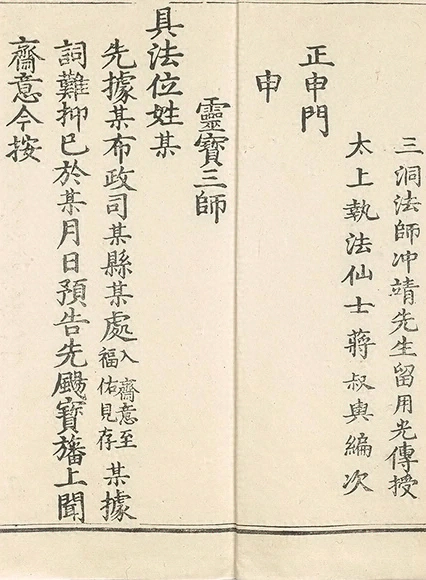 三洞法師冲靖先生留用光傳授
太上執法仙士蔣叔輿編次
正申門
申
靈寶三師
具法位姓某
先據某布政司某縣某處入齋意至福佑見存某據
詞難抑已於某月日預告先颺寶旛上聞
齋意今按